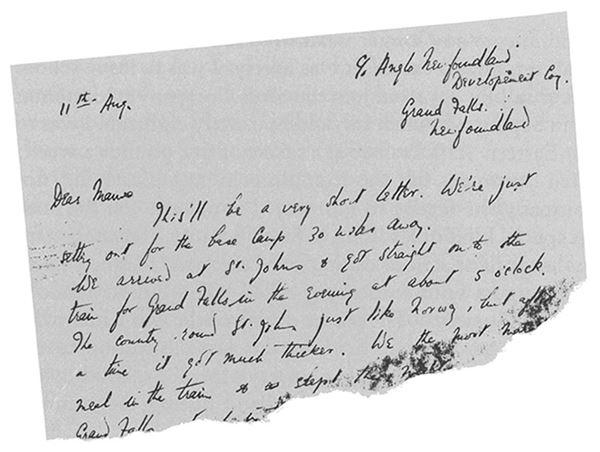 c/o Anglo Newfoundland
Developement Coy.
11th Aug.
Grand Falls.
Newfoundland
Dear
This'll be a very short letter. We're just
setting out for the base Camp 30 miles away.
We arrived at St. Johns & got straight on to the
train for Grand Falls in the evening at about 5 o'clock.
The country round St. Johns just like Norway, but after
a time it got much thicker. We the most
meal in the train & so slept the
Grand Falls